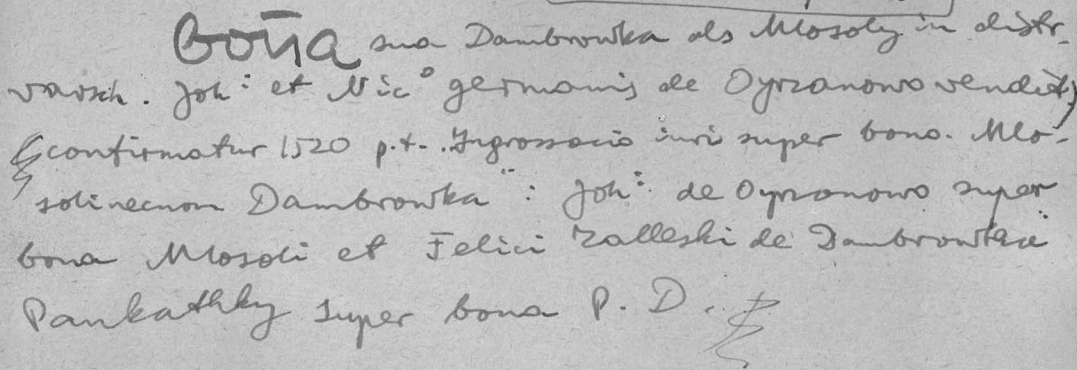 Bona sua Dambrowka als Mosoly in distr.
varsch. Joh: et Nic° germanis de Oyrzanowo vendit)
confirmatur 1520 p.t. "Ingrossacio iuri super bona Mo-
soli necnon Dambrowka": Joh: de Oyrzanowo super
bona Mosoli et Felici Zalleski de Dambrowka
Pankathky super bona P. D.